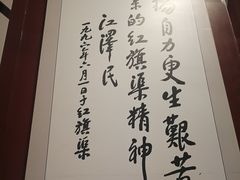 自力更生艱苦
的红旗渠精神
江泽民
一九九六年六月一日于红旗渠